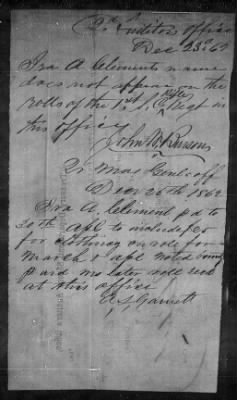 2d Auditors Office
Dec 23d 62
Ira A Clements name
does not appear on the
rolls of the 1st Regt in
this office
John W
Qr Mas Genls off
Decr 26th 1862
Ira A. Clement pd to
30th apl to include $25
for clothing on role for
March & apl noted
paid no later role recd
at this office
Garnett